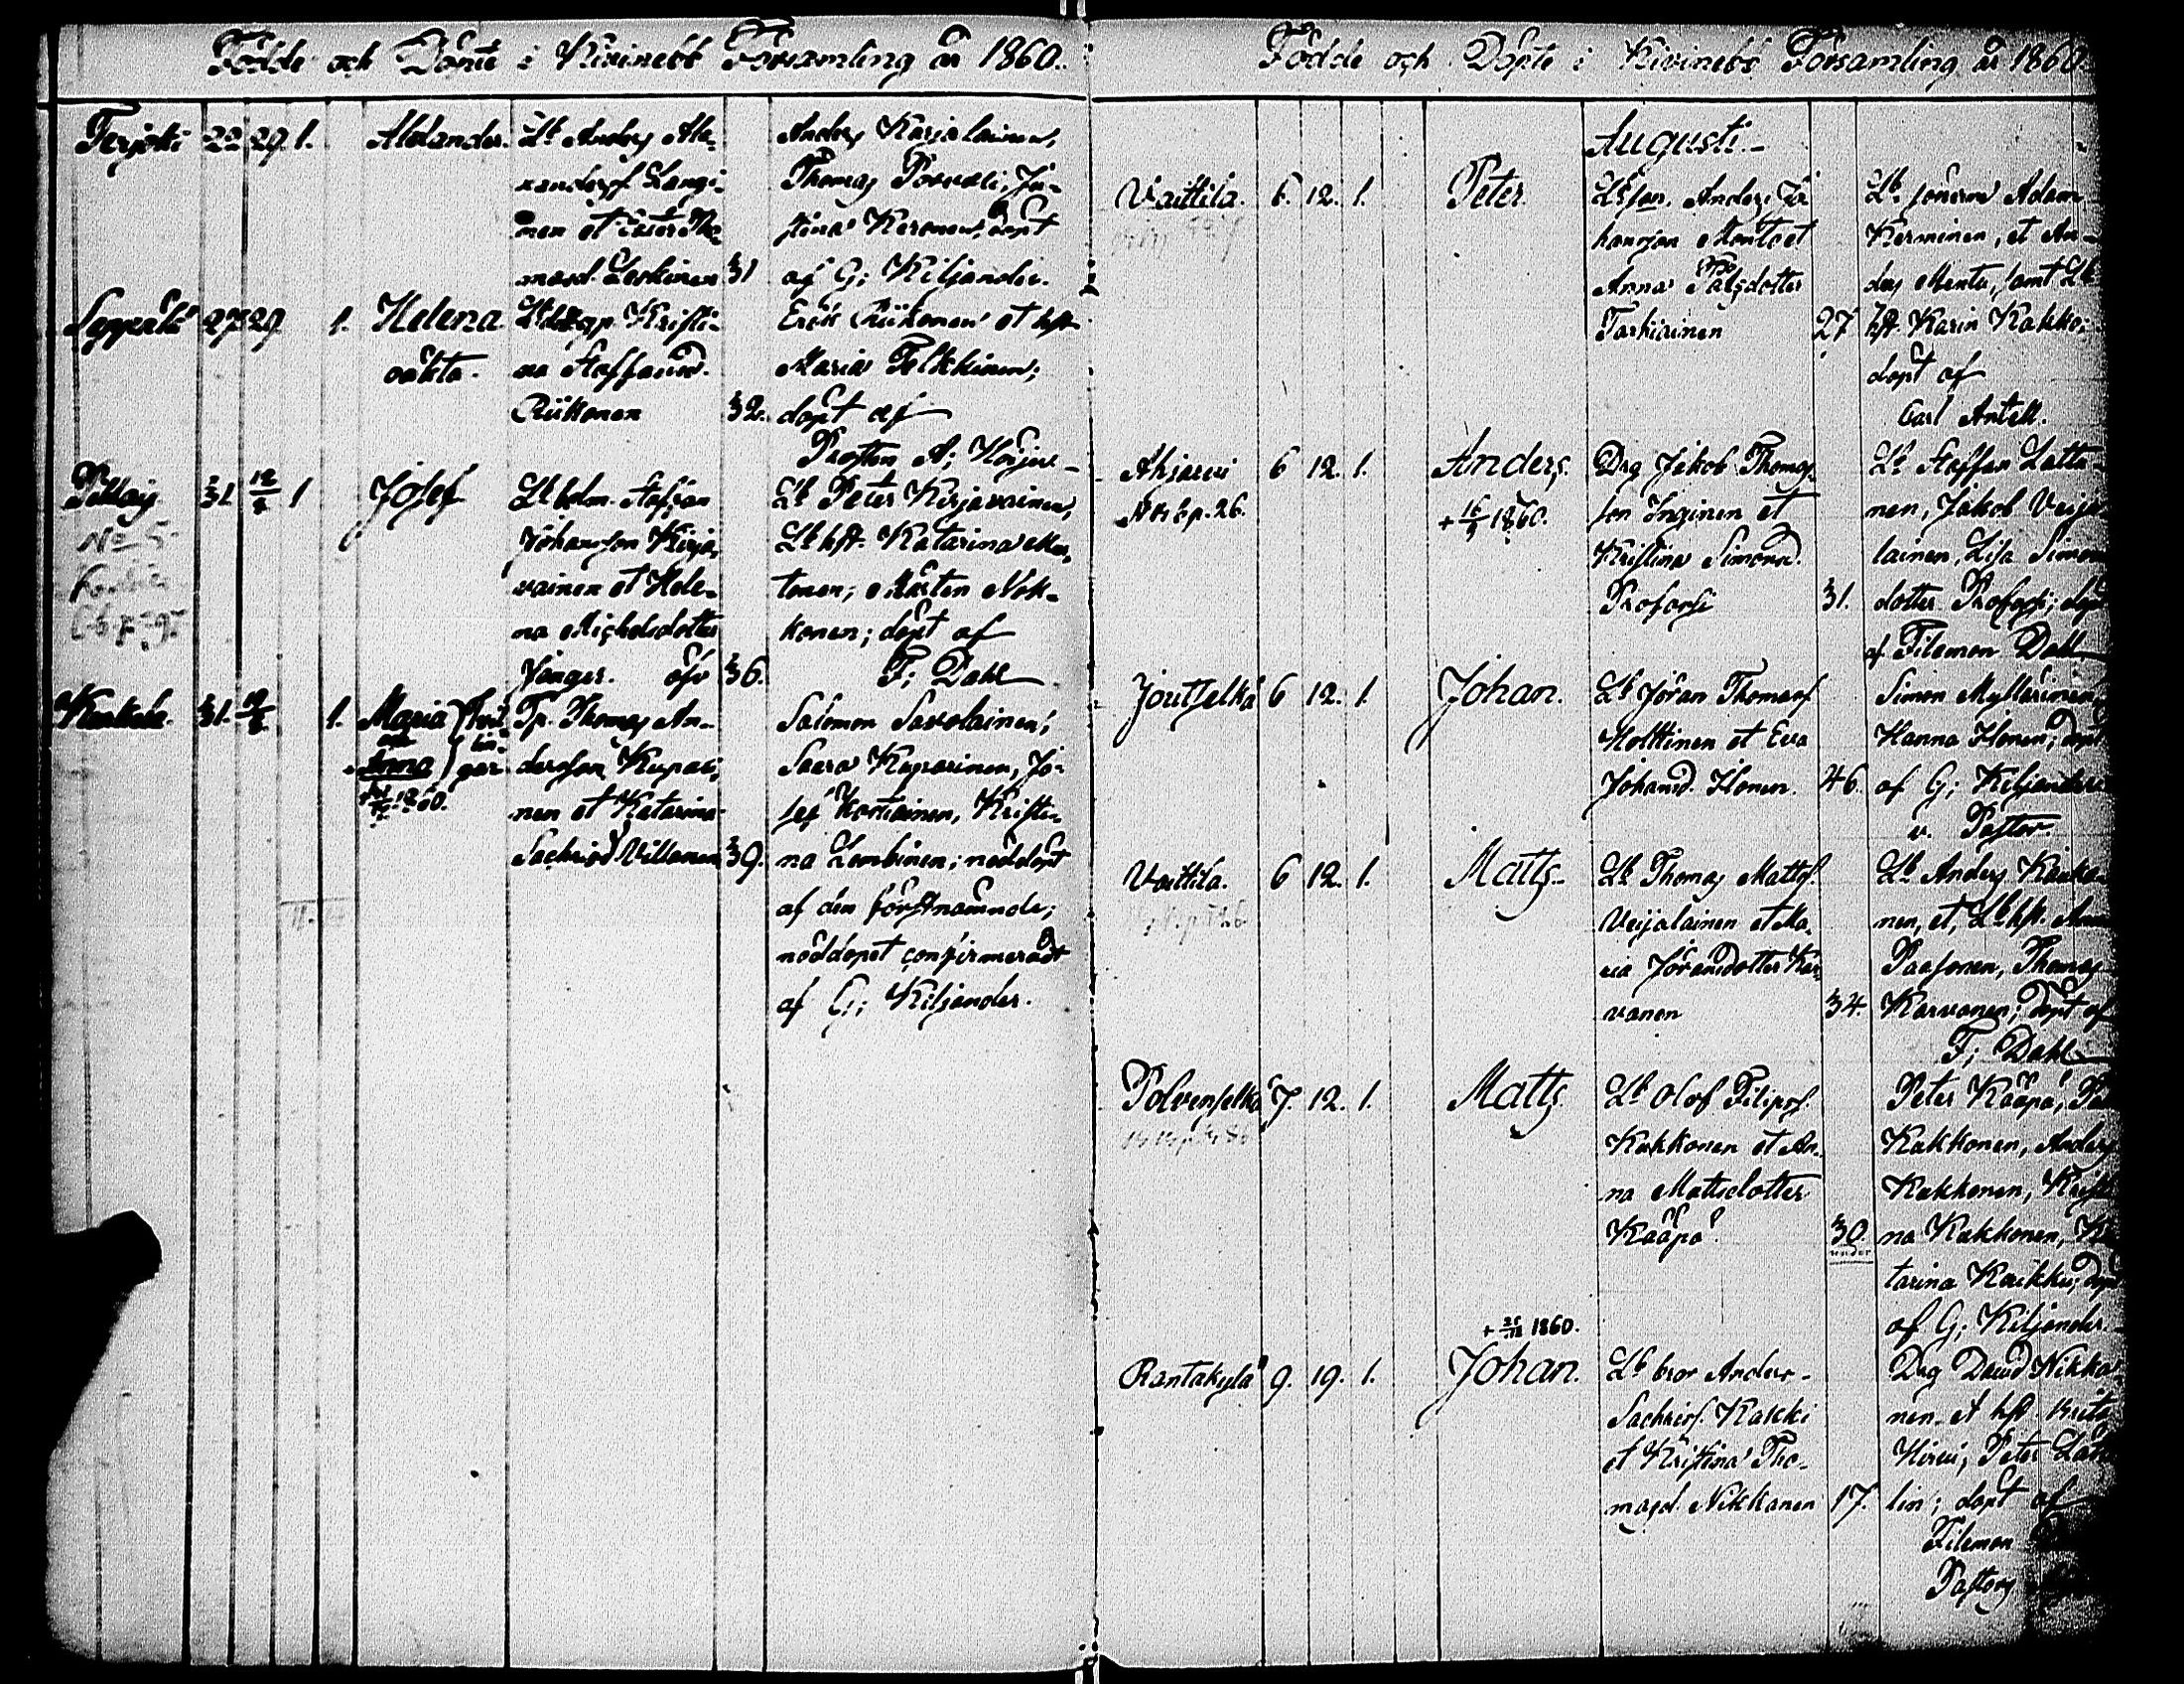 Födde och Döpte i Kivinebb Församling år 1860.
Terjoki 22 29 1. Alexander. Lb Anders Ale-
xandersf Langi-
nen et Ester Tho-
masd. Leskinen 31
Anders Karjalainen,
Thomas Porvali, Ju-
stina Keronen, döpt
af G; Kiljander.
27 29 1. Helena
oäkta.
Kristi-
na Staffansd.
Riikonen 32.
Erik Riikonen et hst
Maria Polkkinen;
döpt af
Prosten A;
31 12/8 1 Josef
No 5
Staffan
Johansson Kirja-
vainen et Hele-
na Michelsdotter
Jänger. öfv 36.
Lb Peter Kirjavainen,
Lb hst. Katarina
tonen; Mårten Nok-
konen; döpt af
F; Dahl
31. 12/8. 1. Maria
och
Anna
1860.
Tvil-
lin-
gar
Tp. Thomas An-
dersson Kupari-
nen et Katarina
Sachrisd Villanen 39.
Salomon Savolainen,
Saara Kuparinen, Jo-
sef Kontiainen, Kristi-
na Lembinen; nöddöpt
af den förstnämnde;
nöddopet confirmeradt
af G; Kiljander.
Födde och Döpte i Kivinebb Församling år 1860.
Augusti.
Vaittila. 6. 12. 1. Peter.
Anders Jo-
hansson Mentu et
Anna
Tarkiainen 27
Lb sonen Adam
Kerminen, et An-
ders Mentu, samt Lb
hst. Karin Kakko;
döpt af
Carl Antell.
Ahjärvi 6 12. 1. Anders.
26.
+ 1860.
Drg Jakob Thomas-
son Inginen et
Kristina Simonsd.
Profossi 31.
Lb Staffan Lattu-
nen, Jakob Veija-
lainen, Lisa Simons-
dotter Profossi; döpt
af Filemon Dahl
Joutselkä 6 12. 1. Johan.
Lb Jöran Thomasf
Holttinen et Eva
Johansd. Ilonen. 46.
Simon Myllärinen,
Hanna Ilonen; döpt
af G; Kiljander
v. Pastor.
Vaittila. 6 12. 1. Matts.
Lb Thomas Mattsf.
Veijalainen et Ma-
ria Jöransdotter Kar-
vanen 34.
Lb Anders Kauka-
nen, et, Lb hst. Anna
Paasonen, Thomas
Karvanen; döpt af
F; Dahl
Polvenselkä 7. 12. 1. Matts.
Lb Olof Filipsf.
Kukkonen et An-
na Mattsdotter
Kääpä. 30.
under
Peter Kääpä,
Kukkonen, Anders
Kukkonen, Kristi-
na Kukkonen, Ka-
tarina Kaikku; döpt
af G; Kiljander.
+ 1860.
Rantakylä 9. 19. 1. Johan.
Lb bror Anders
Sachrisf. Kakki
et Kristina Tho-
masd. Nikkanen 17.
Drg David Nikka-
nen et hst.
Hirvi, Peter
lin; döpt af
Filemon
Pastor